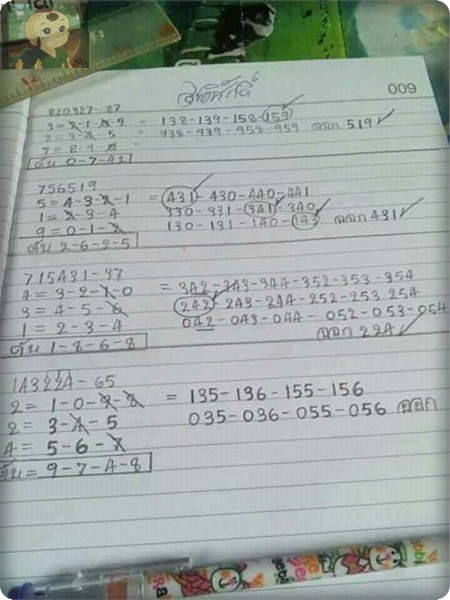 009
820427-87
3 = 2-1-0-9 = 138-139-158-159
2 = 3-4-5 = 938-939-958-959 ออก 519
7 = 8-9-0 =
ดับ 0-7-4-2
756519
5 = 4-3-2-1 = 431-430-440-441
1 = 2-3-4 330-331-341-340
9 = 0-1-2 130-131-140-143 ออก 431
ดับ 2-6-2-5
715431-97
4 = 3-2-1-0 = 342-343-344-352-353-354
3 = 4-5-6 242-243-244-252-253 254
1 = 2-3-4 042-043-044-052-053-054
ดับ 1-8-6-8 ออก 224
143224-65
2 = 1-0-9-8 = 135-136-155-156
2 = 3-4-5 035-036-055-056 ออก
4 = 5-6-7
ดับ = 9-7-4-8